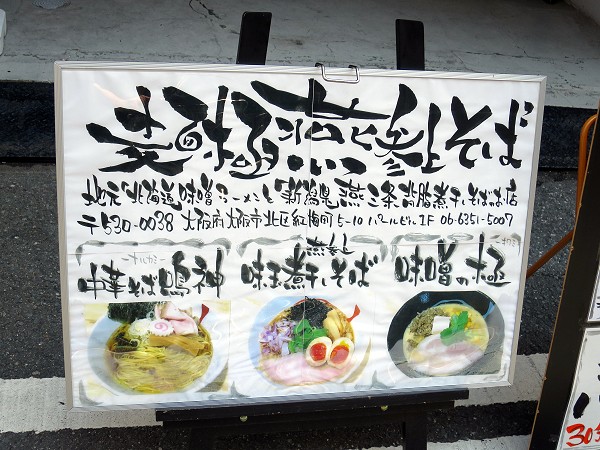 麦味極 燕三 そば
地元"北海道味噌ラーメンと"新潟県燕三条背脂煮干しそばのお店
〒530-0038 大阪府大阪市北区紅梅町5-10 パールビル1F 06-6351-5007
中華そば鳴神
燕三
味玉煮干しそば
味噌の極
30